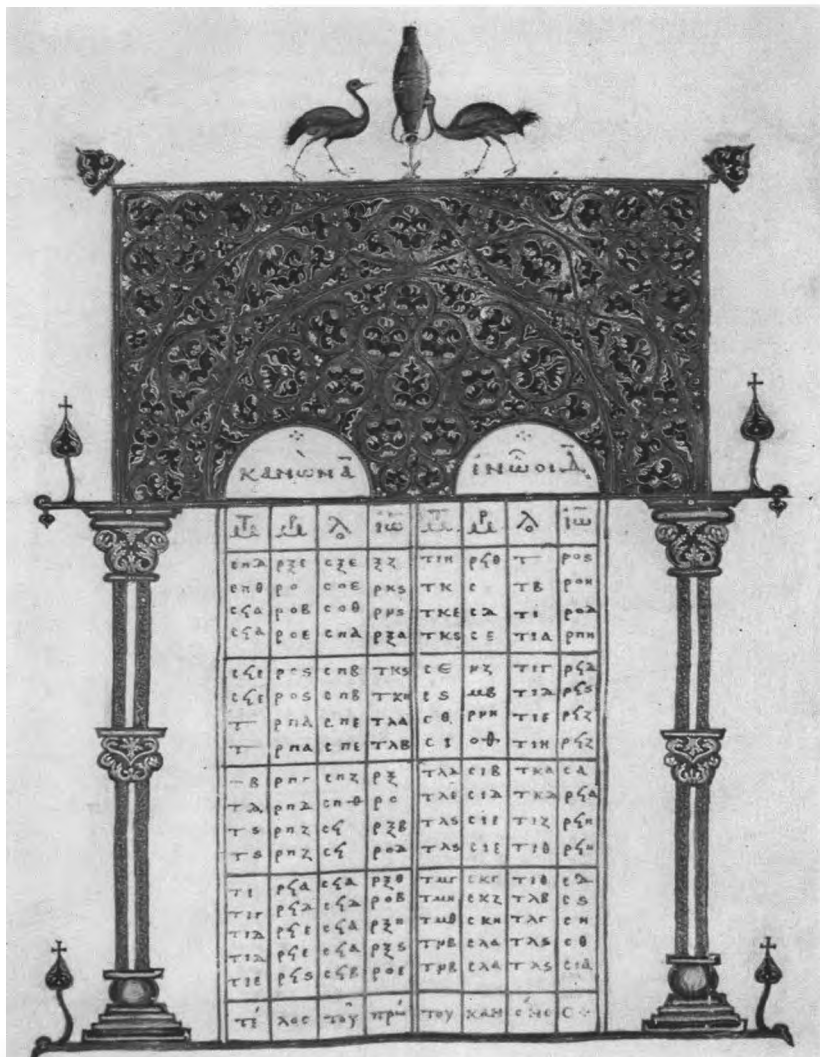 κανὼν ᾱ ἐν ᾧ οἱ δ̄
Μτ Μρ Λο ἰω Μτ Μρ Λο ἰω
σπδ ρξε σξε ξζ τιη ρϟθ τ ροϛ
σπθ ρο σοε ρκϛ τκ σ τβ ροη
σϟα ροβ σοθ ρνϛ τκε σδ τι ροδ
σϟδ ροε σπα ρξα τκϛ σε τια ρπη
σϟε ροϛ σπβ τκϛ σε μζ τιγ ρϟδ
σϟε ροϛ σπβ τκη σϛ μβ τιδ ρϟϛ
τ ρπα σπε τλα σθ ρμη τιε ρϟζ
τ ρπα σπε τλβ σι οθ τιη ρϟζ
τβ ρπγ σπζ ρξ τλδ σιβ τκα σα
τδ ρπδ σπθ ρο τλε σιδ τκδ ρϟδ
τϛ ρπζ σϟ ρξβ τλϛ σιε τιζ ρϟη
τϛ ρπζ σϟ ροδ τλϛ σιε τιθ ρϟη
τι ρϟα σϟδ ρξθ τμγ σκγ τιθ σδ
τιγ ρϟδ σϟδ ροβ τμη σκζ τλβ σϛ
τιδ ρϟε σϟα ρξη τμθ σκη τλγ ση
τιδ ρϟε σϟα ρξϛ τμβ σλα τλϛ σθ
τιε ρϟϛ σϟβ ροε τμβ σλα τλϛ σια
τέ λος τοῦ πρώ του καν όνο ς